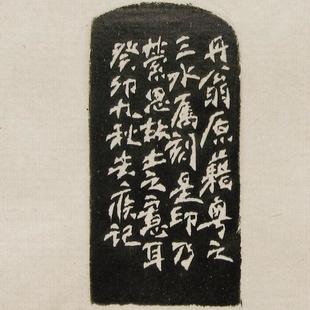 丹翁原藉粤之
三水属刻是印乃
萦思故土之意耳
癸卯九秋去疾记